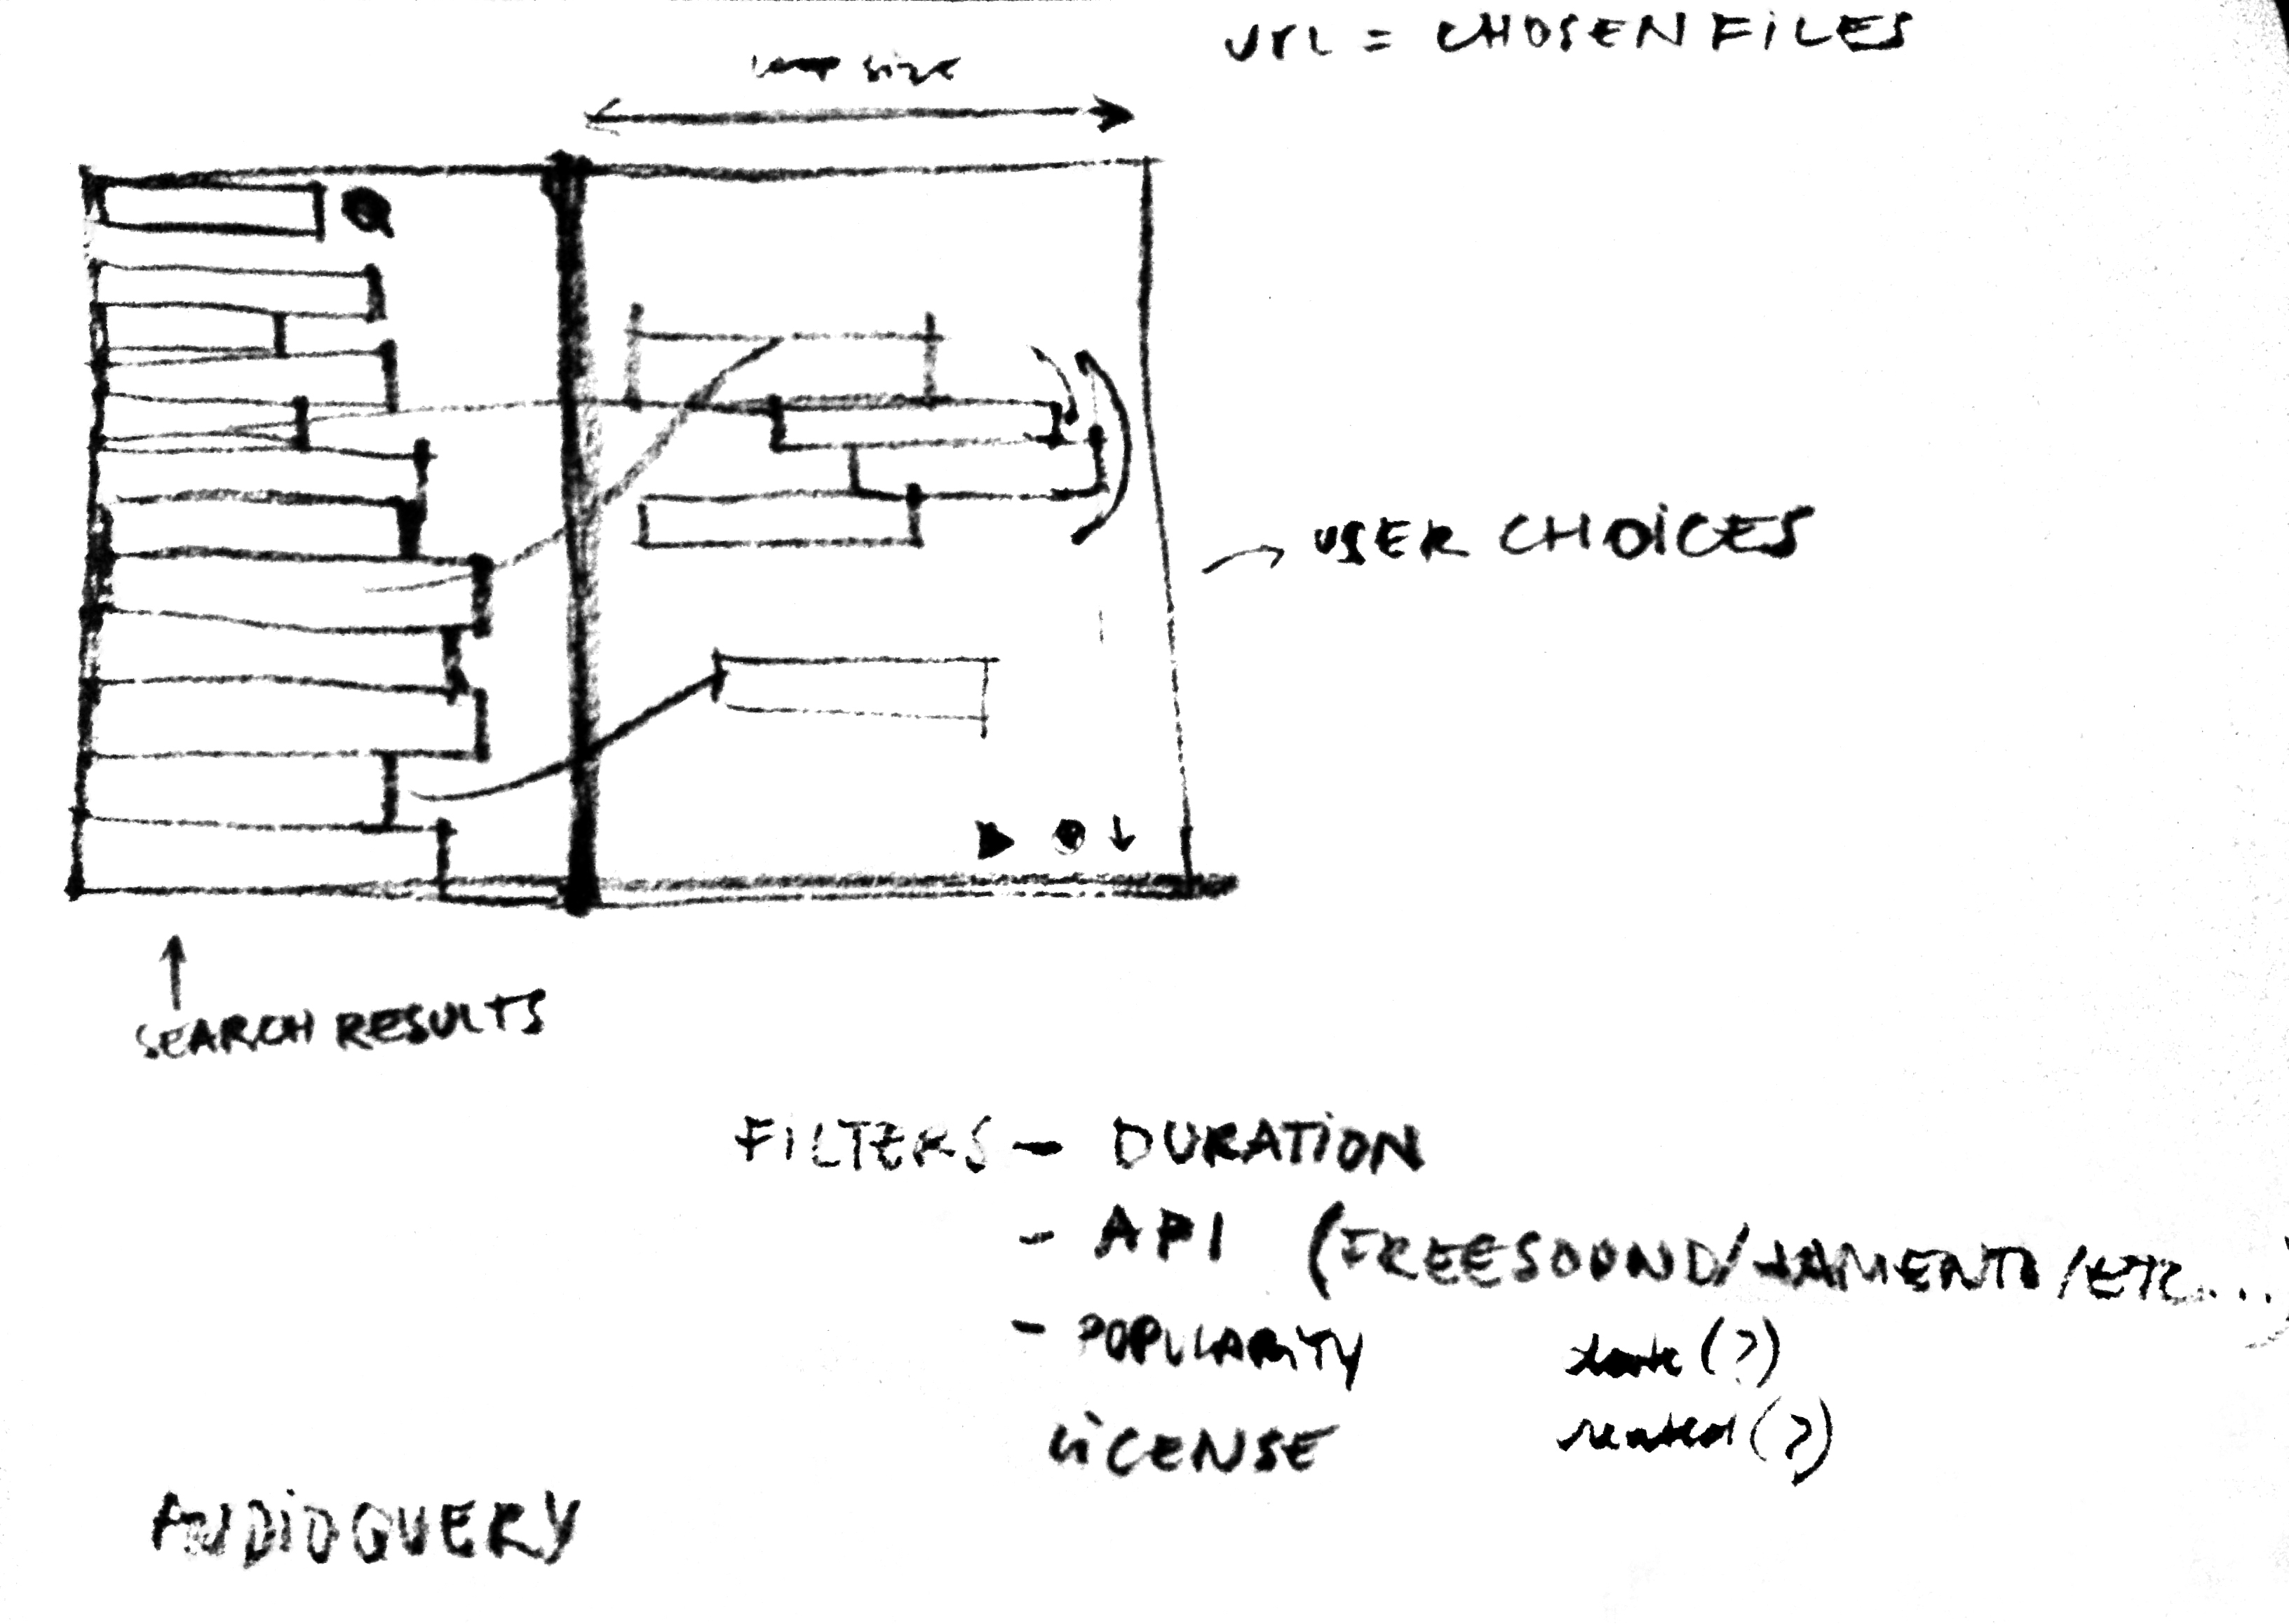 url = CHOSEN FILES
size
USER CHOICES
SEARCH RESULTS
FILTERS - DURATION
- API (FREESOUND/JAMENDO/ETC...)
- POPULARITY
(?)
LICENSE
(?)
AUDIOQUERY